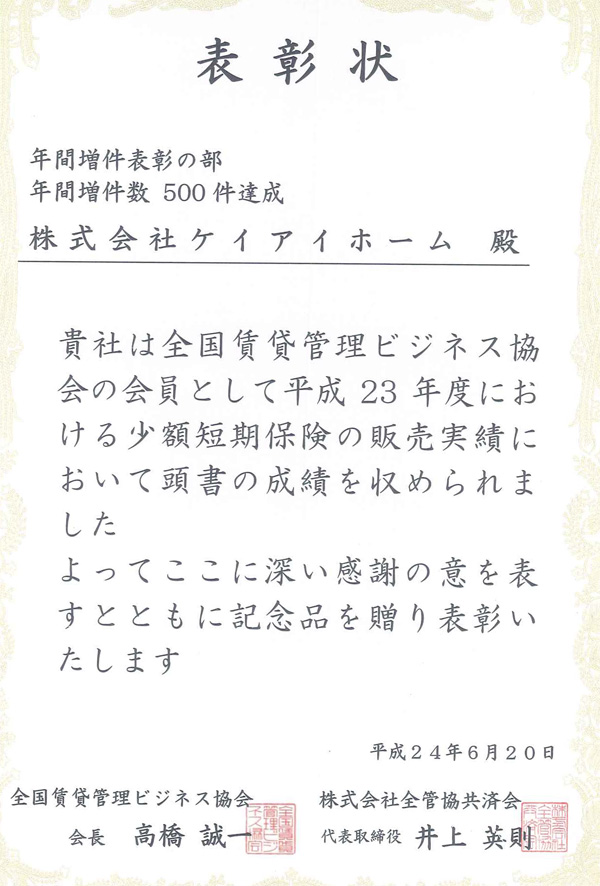 表彰状
年間増件表彰の部
年間増件数 500件達成
株式会社ケイアイホーム 殿
貴社は全国賃貸管理ビジネス協
会の会員として平成 23 年度にお
ける少額短期保険の販売実績に
おいて頭書の成績を収められま
した
よってここに深い感謝の意を表
すとともに記念品を贈り表彰い
たします
平成24年6月20日
全国賃貸管理ビジネス協会
会長 高橋 誠一
株式会社全管協共済会
代表取締役 井上 英則